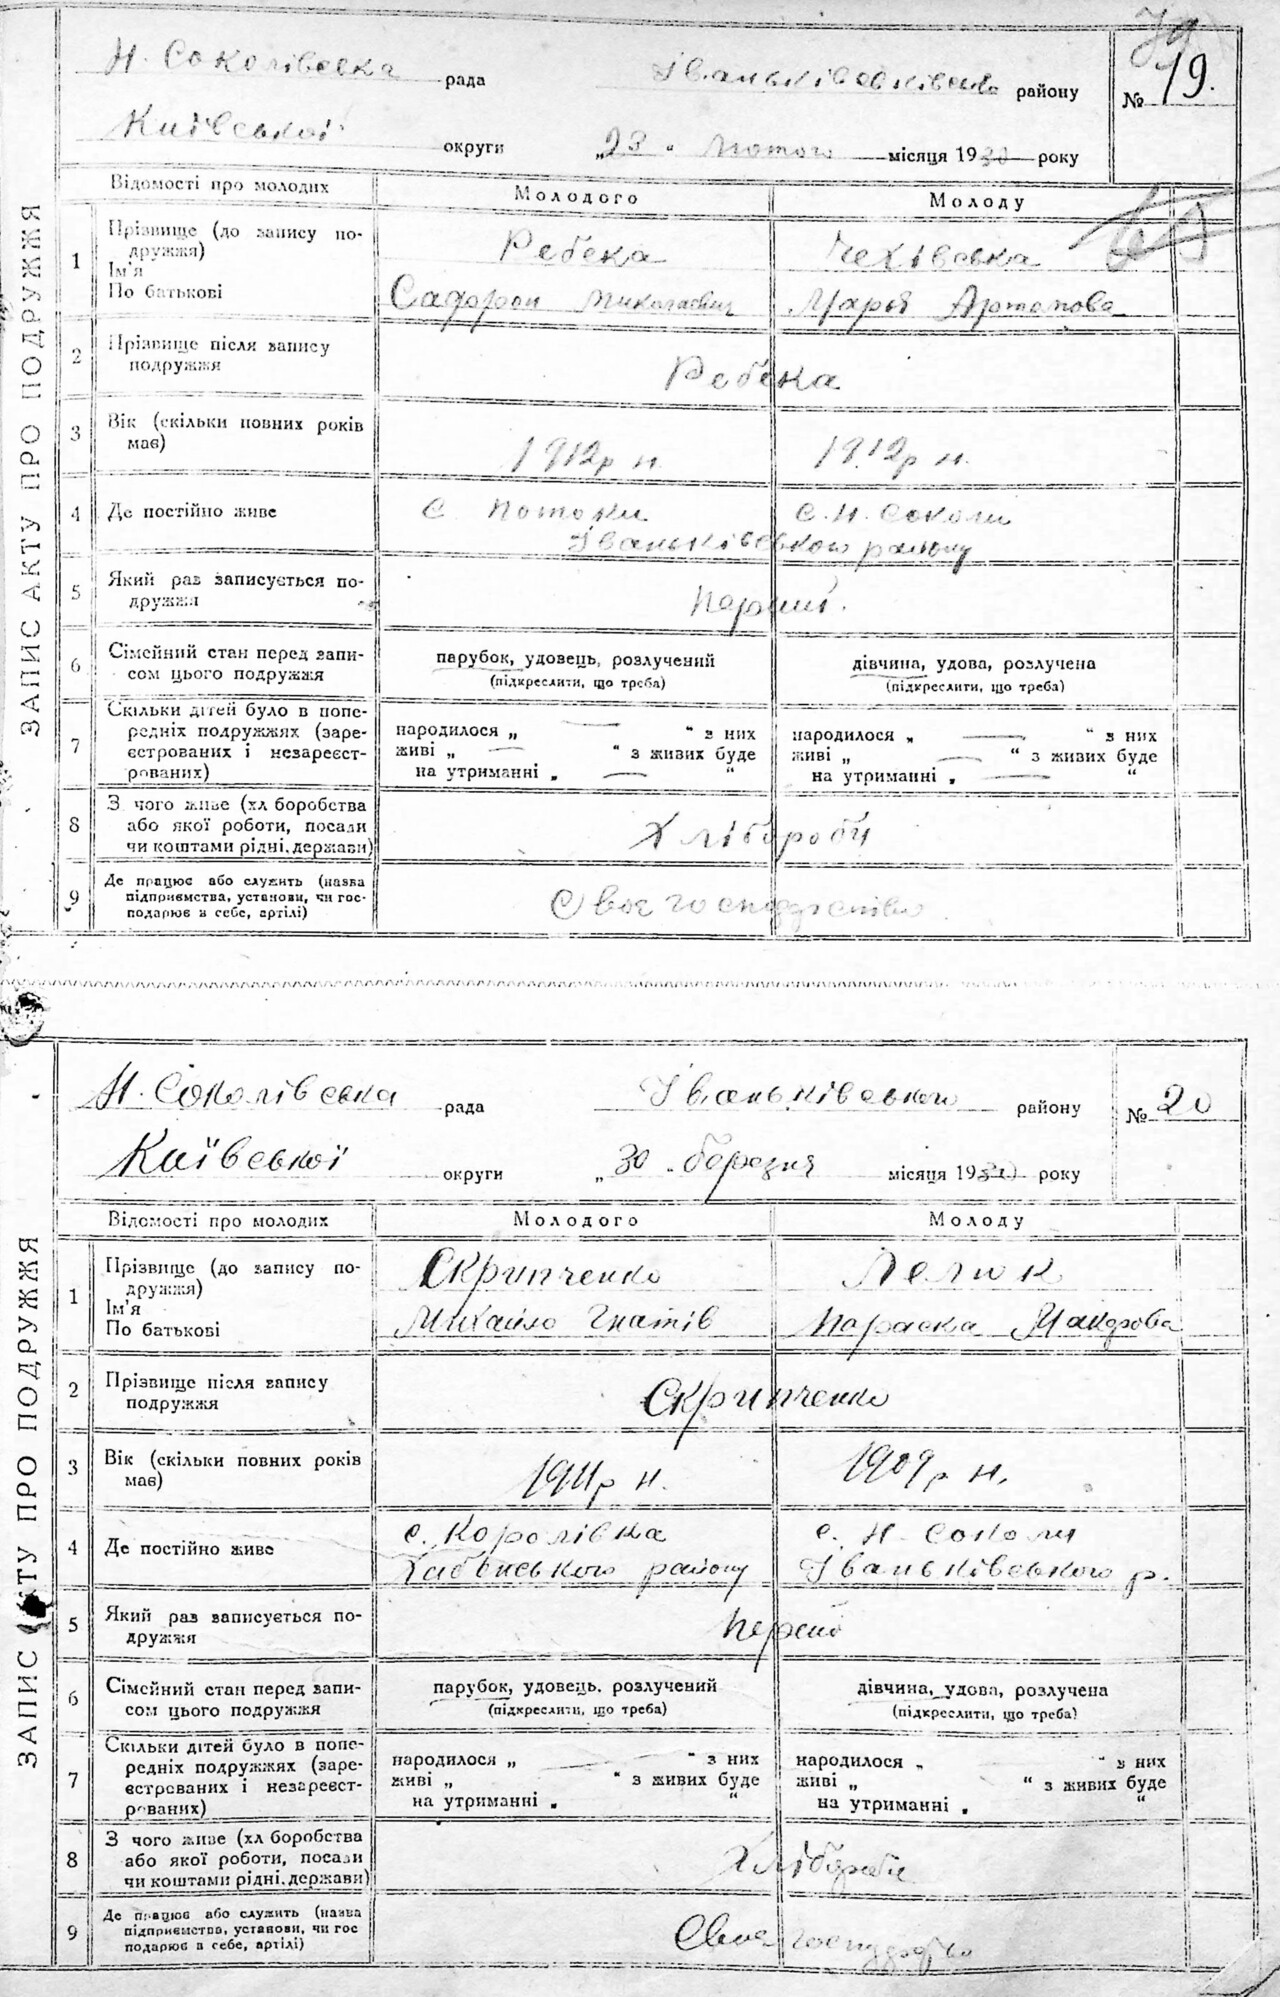 79
Н. Соколівська рада Іваньківськівсько району № 19.
Київської округи „23" лютого місяця 1930 року
ЗАПИС АКТУ ПРО ПОДРУЖЖЯ
Відомості про молодих Молодого Молоду
1 Прізвище (до запису по- Ребека Чехівська
дружжя)
Ім'я
По батькові Сафрон Миколаєвич Марія Артемова
2 Прізвище після запису
подружжя Ребека
3 Вік (скільки повних років
має) 1912р н. 1912р н.
4 Де постійно живе С Потоки с. Н. Соколи
Іваньківського району
5 Який раз записується по-
дружжя Перший.
6 Сімейний стан перед запи- парубок, удовець, розлучений дівчина, удова, розлучена
сом цього подружжя (підкреслити, що треба) (підкреслити, що треба)
7 Скільки дітей було в попе-
редніх подружжях (заре- народилося „ — " з них народилося „ — " з них
єстрованих і незареєст- живі „ — " з живих буде живі „ — " з живих буде
рованих) на утриманні „ — " на утриманні „ — "
8 З чого живе (хл боробства
або якої роботи, посади Хлібороби
чи коштами рідні, держави)
9 Де працює або служить (назва
підприємства, установи, чи гос- Своє господарство
подарює в себе, артілі)
Н. Соколівська рада Іваньківського району № 20
Київської округи „30 „ березня місяця 1930 року
ЗАПИС АКТУ ПРО ПОДРУЖЖЯ
Відомості про молодих Молодого Молоду
1 Прізвище (до запису по- Скрипченко Лелюк
дружжя)
Ім'я
По батькові Михайло Гнатів Параска Макарова
2 Прізвище після запису
подружжя Скрипченко
3 Вік (скільки повних років
має) 1911р н. 1909р н.
4 Де постійно живе с. Королівка с. Н. Соколи
Хабенського району Іваньківського р.
5 Який раз записується по-
дружжя
6 Сімейний стан перед запи- парубок, удовець. розлучений дівчина, удова, розлучена
сом цього подружжя (підкреслити, що треба) (підкреслити, що треба)
7 Скільки дітей було в попе-
редніх подружжях (заре- народилося „ " з них народилося „ " з них
єстрованих і незареєст- живі „ " з живих буде живі „ " з живих буде
рованих) на утриманні „ " на утриманні „ "
8 З чого живе (хл боробства
або якої роботи, посади Хлібороби
чи коштами рідні, держави)
9 Де працює або служить (назва
підприємства, установи, чи гос Своє господарство
подарює в себе, артілі)